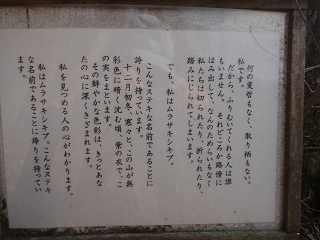 何の変哲もなく、取り柄もない。
私です。
だから、ふりむいてくれる人は誰
もいません。それどころか路傍に
はみ出して、なんのためらいもなく
私たちは切られたり、折られたり、
踏みにじられてしまいます。
でも、私はムラサキシキブ。
こんなステキな名前であることに
誇りを持っています。
十二月初冬、寒々と、この山が無
彩色に暗く沈む頃、紫の衣で、こ
の実をまといます。
その鮮やかな色彩は、きっとあな
たの心に深くきざまれます。
私を見つめる人の心がわかります。
私はムラサキシキブ。こんなステキ
な名前であることに誇りを持ってい
ます。